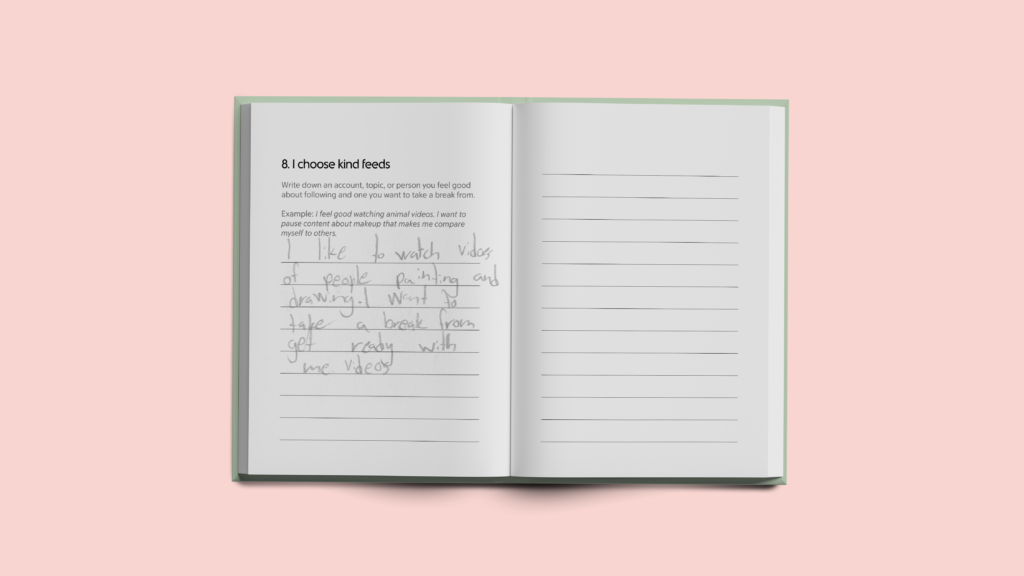 8. I choose kind feeds
Write down an account, topic, or person you feel good
about following and one you want to take a break from.
Example: I feel good watching animal videos. I want to
pause content about makeup that makes me compare
myself to others.
I like to watch videos
of people painting and
drawing. I want to
take a break from
get ready with
me videos